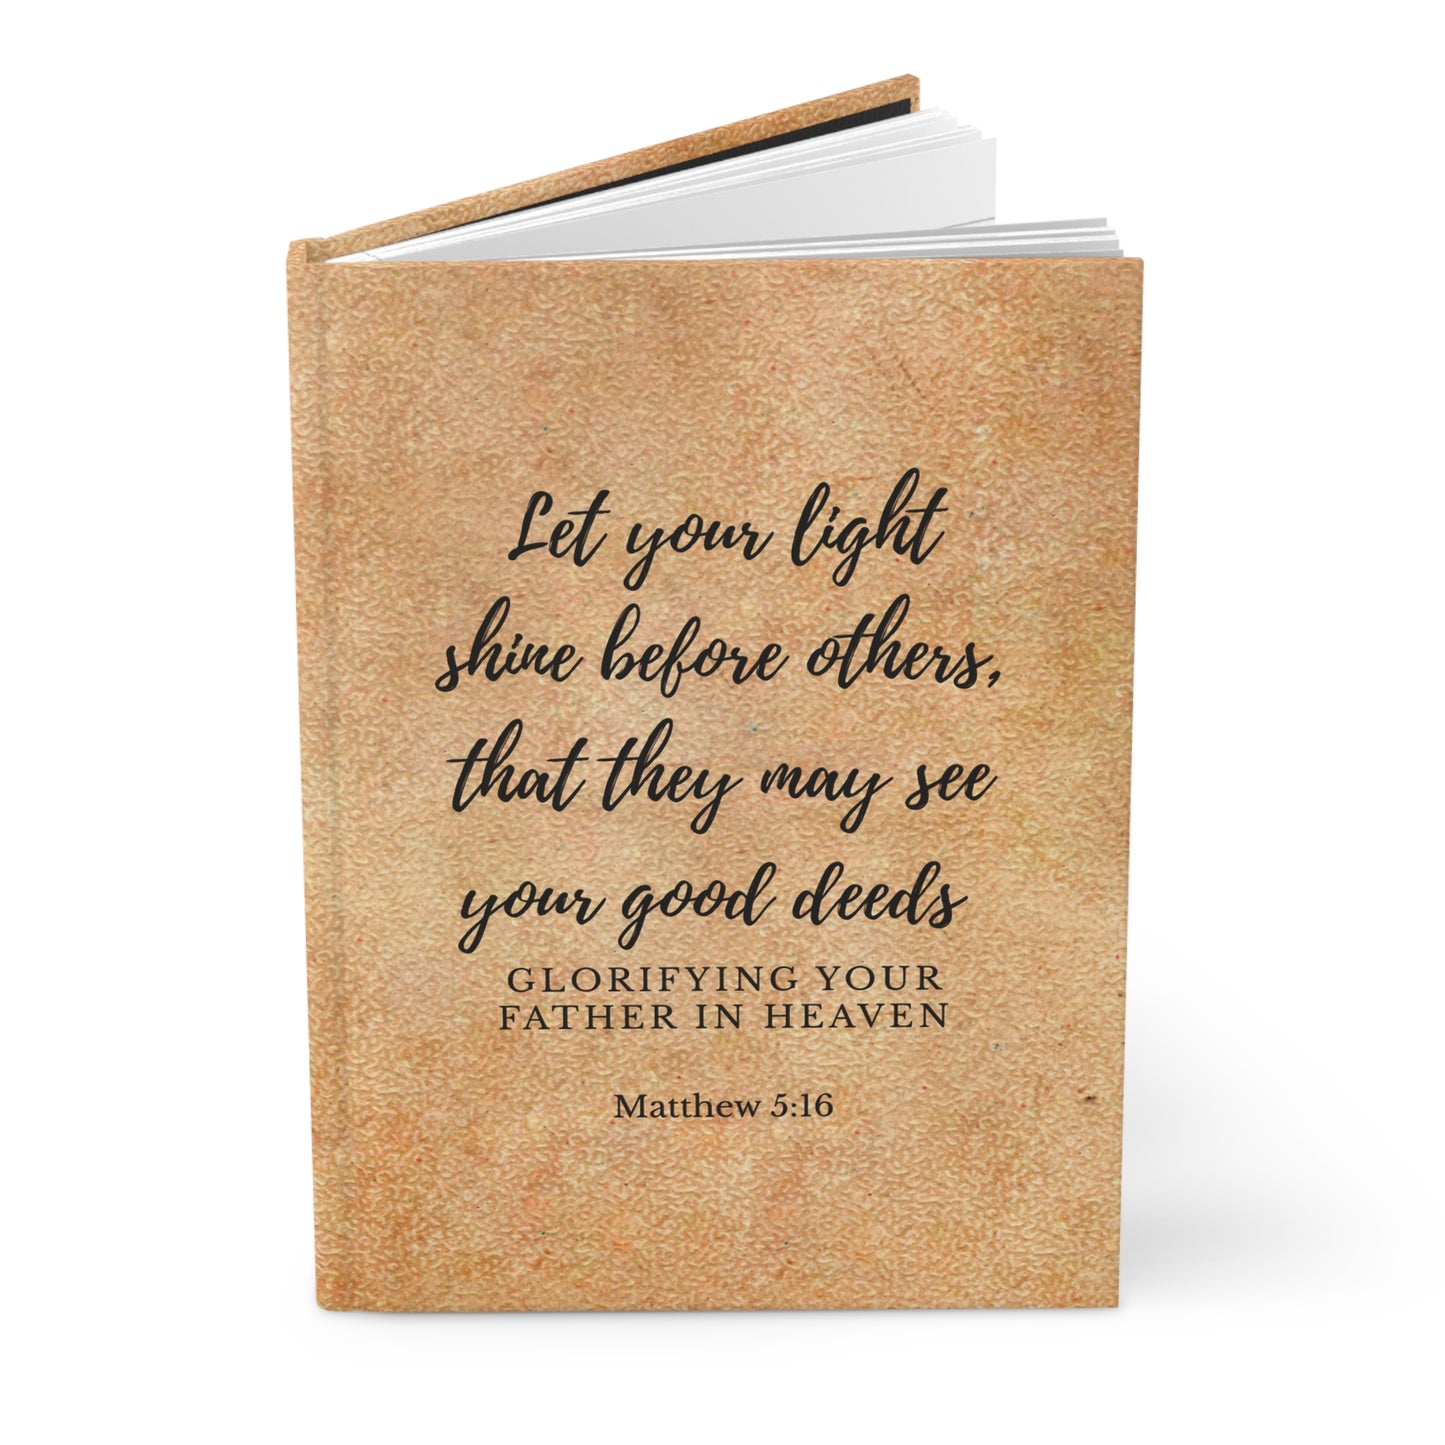 Let your light
shine before others,
that they may see
your good deeds
GLORIFYING YOUR
FATHER IN HEAVEN
Matthew 5:16